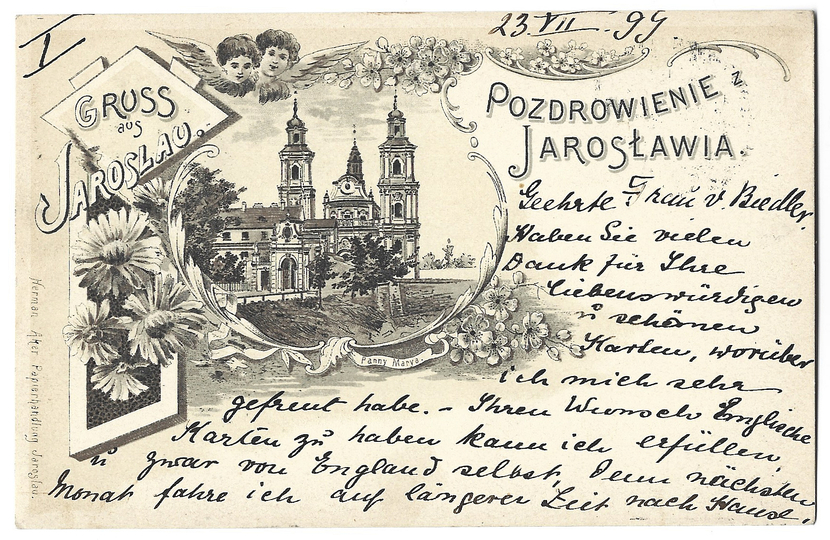 I
23. VII. 99
GRUSS
aus
JAROSLAU.
POZDROWIENIE z
JAROSŁAWIA.
Panny Marya.
Herman Alter Papierhandlung Jaroslau.
Geehrte Frau v. Biedler,
Haben Sie vielen
Dank für Ihre
liebenswürdigen
u schönen
Karten, worüber
ich mich sehr
gefreut habe. – Ihren Wunsch Englische
Karten zu haben kann ich erfüllen,
u zwar von England selbst, denn nächsten
Monat fahre ich auf längerer Zeit nach Hause,